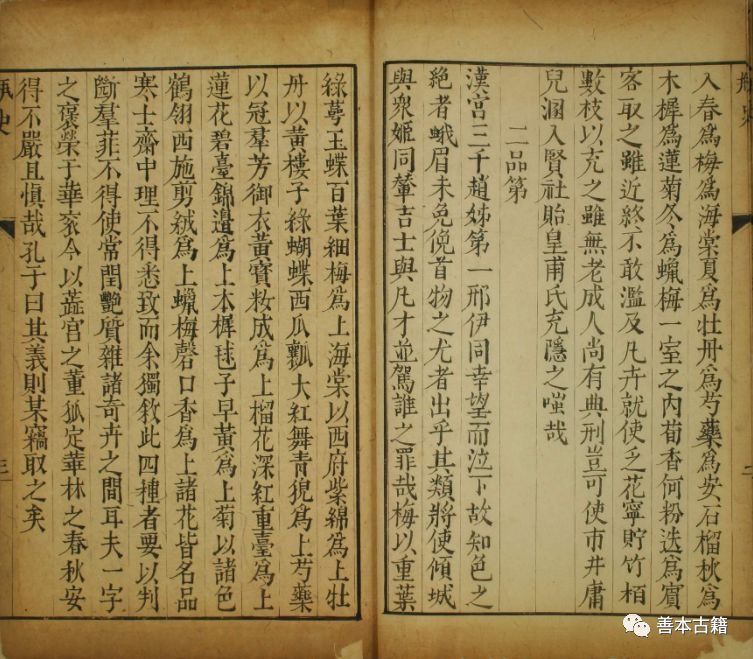 瓶史
二
入春為梅為海棠夏為牡丹為芍藥為安石榴秋為
木樨為蓮菊冬為蠟梅一室之內荀香何粉迭為賓
客取之雖近終不敢濫及凡卉就使乏花寧貯竹栢
數枝以充之雖無老成人尚有典刑豈可使市井庸
兒溷入賢社貽皇甫氏充隱之嗤哉
二品第
漢宮三千趙姊第一邢伊同幸望而泣下故知色之
絕者蛾眉未免俛首物之尤者出乎其類將使傾城
與衆姬同輦吉士與凡才並駕誰之罪哉梅以重葉
綠萼玉蝶百葉緗梅為上海棠以西府紫綿為上牡
丹以黃樓子綠蝴蝶西瓜瓤大紅舞青猊為上芍藥
以冠羣芳御衣黃寶粧成為上榴花深紅重臺為上
蓮花碧臺錦邊為上木樨毬子早黃為上菊以諸色
鶴翎西施剪絨為上蠟梅磬口香為上諸花皆名品
寒士齋中理不得悉致而余獨敘此四種者要以判
斷羣菲不得使常閨艷質雜諸奇卉之間耳夫一字
之褒榮于華袞今以蕋宮之董狐定華林之春秋安
得不嚴且慎哉孔子曰其義則某竊取之矣
瓶史
三
善本古籍